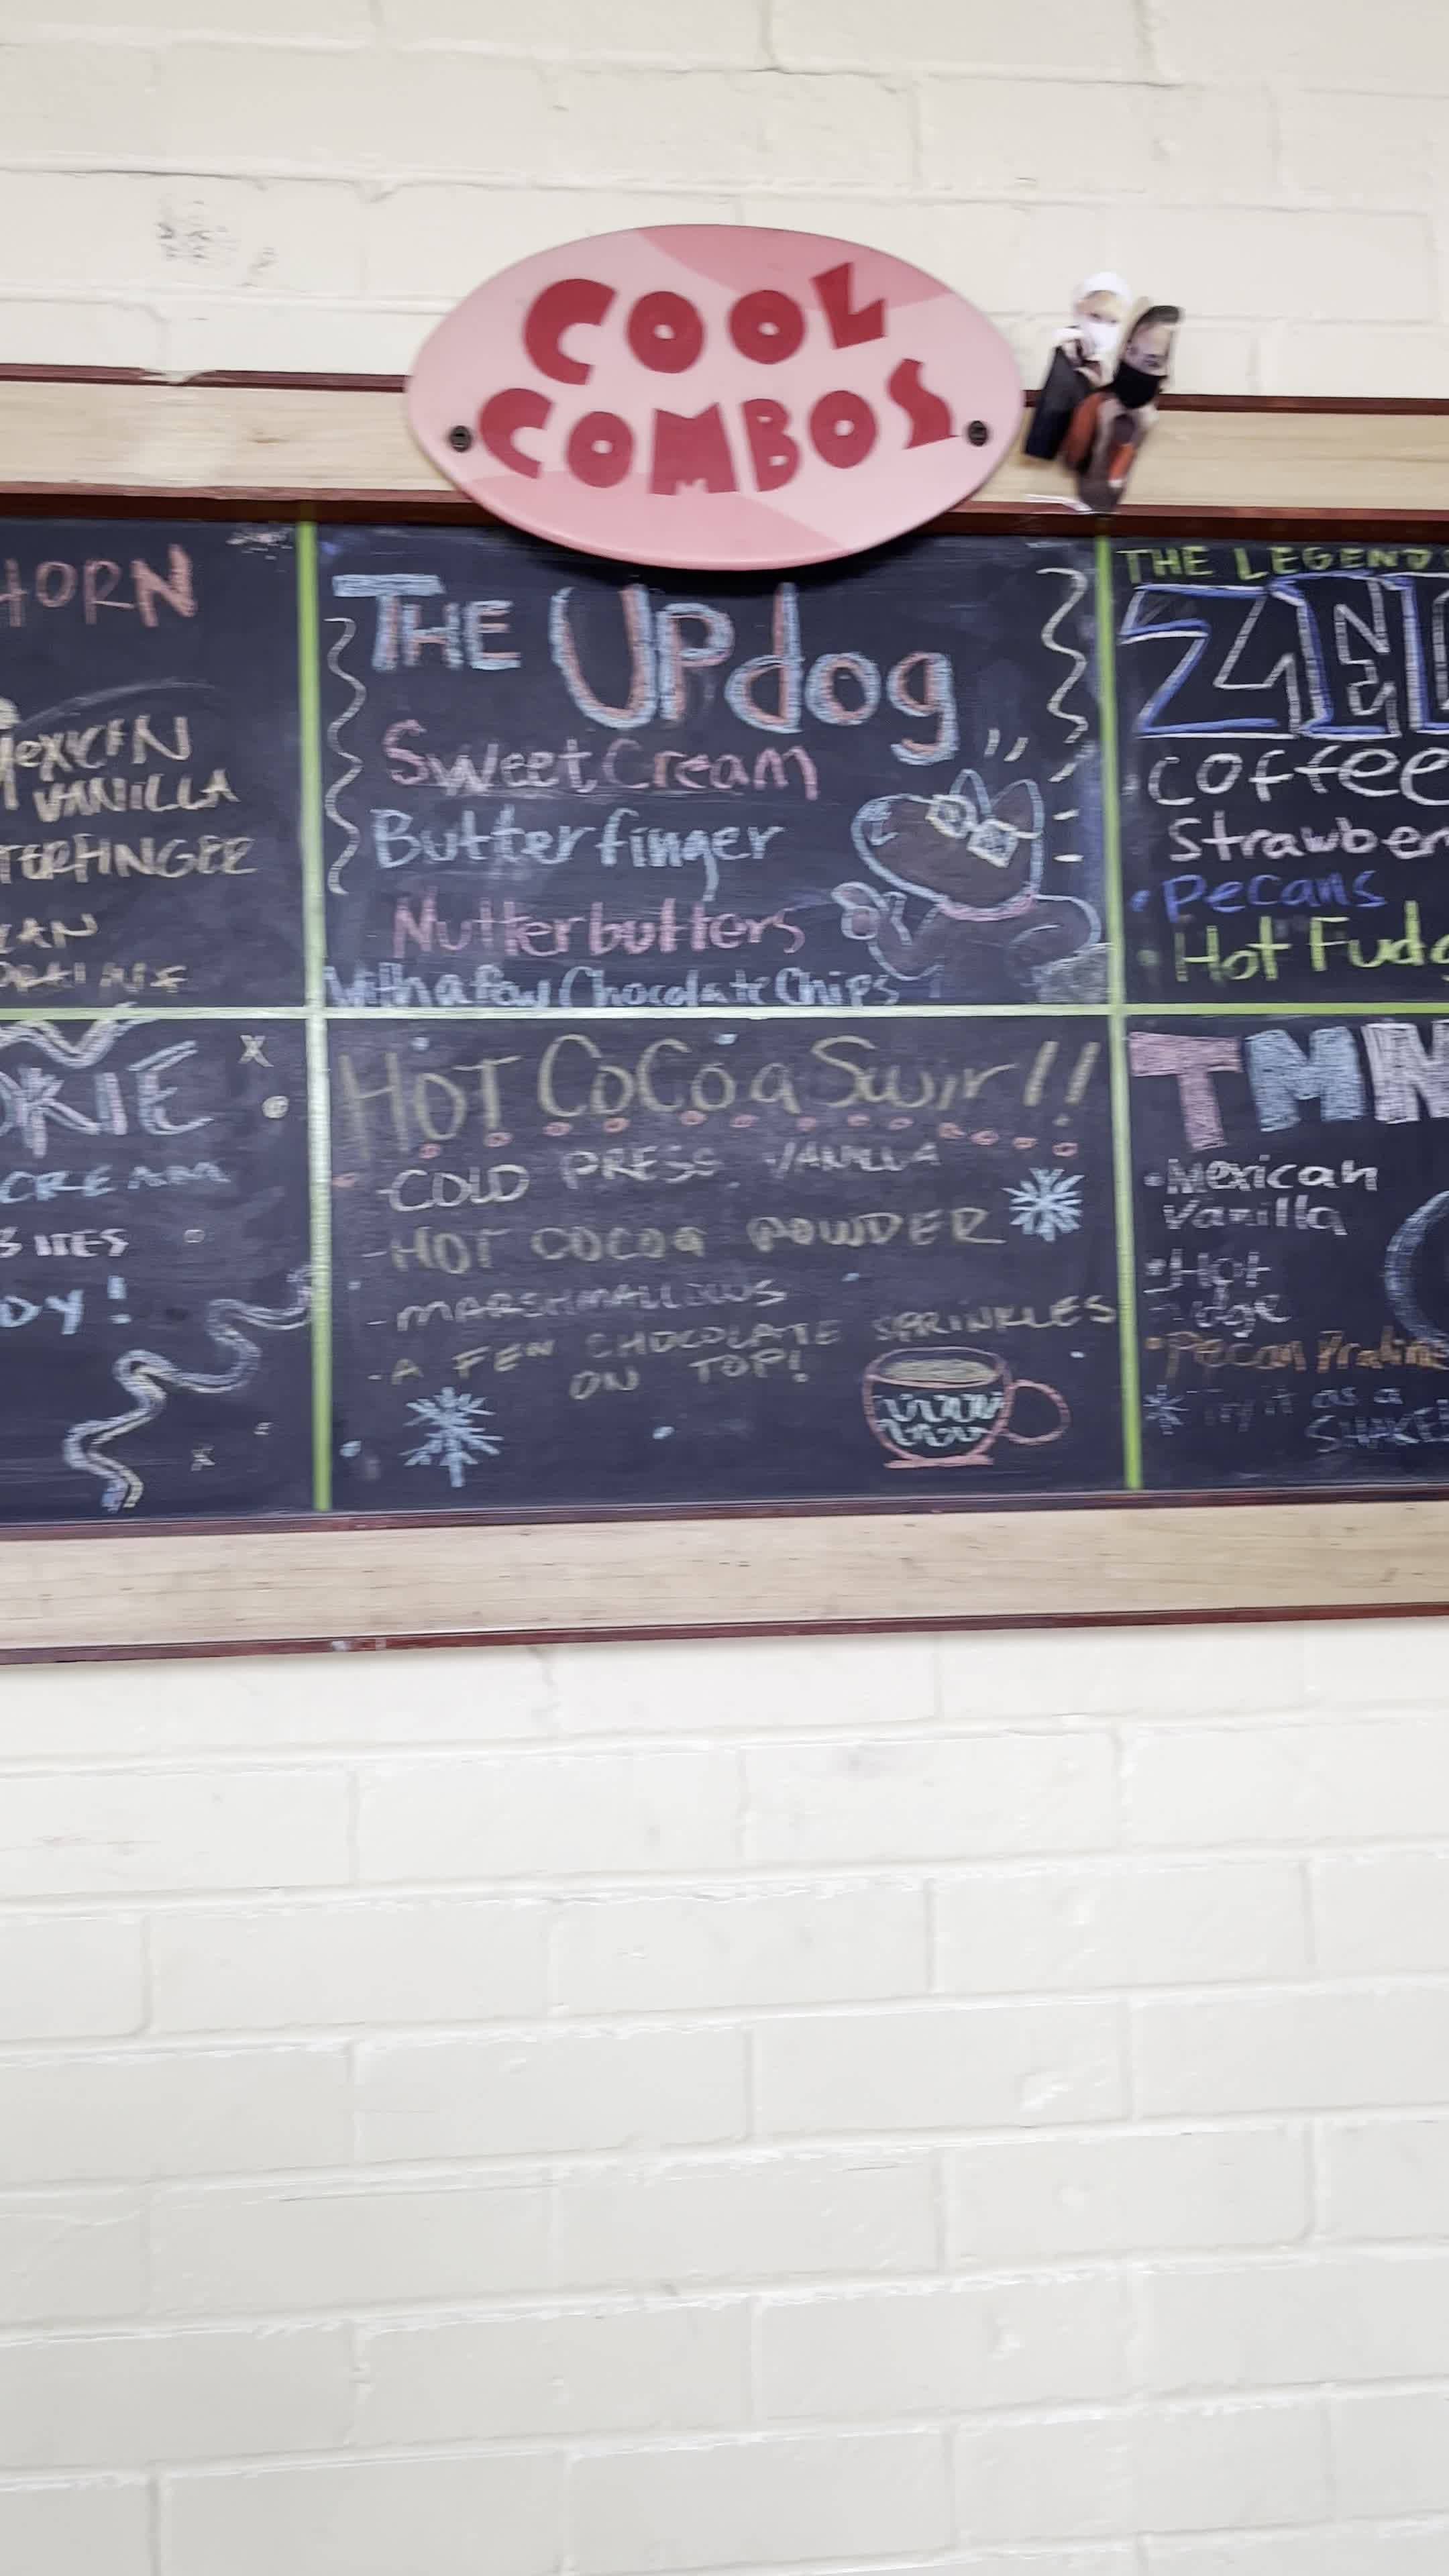 COOL
COMBOS
HORN
MEXICAN
VANILLA
TERFINGER
THE UPdog
Sweet Cream
Butterfinger
Nutterbutters
with a few Chocolate Chips
THE LEGEND
coffee
Strawber
• Pecans
• Hot Fudg
OKIE
CREAM
BITES
DY!
HOT CoCoa Swirl!!
-COLD PRESS VANILLA
-HOT COCOA POWDER
-MARSHMALLOWS
-A FEW CHOCOLATE SPRINKLES
ON TOP!
TMN
•Mexican
Vanilla
•Hot
Fudge
•Pecan Praline
Try it as a
SHAKE